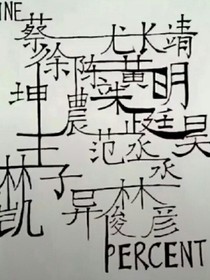 INE
蔡 尤长靖
徐陈 黄明
坤農 正廷昊
范丞丞
王子异
林凯
林彦俊
PERCENT